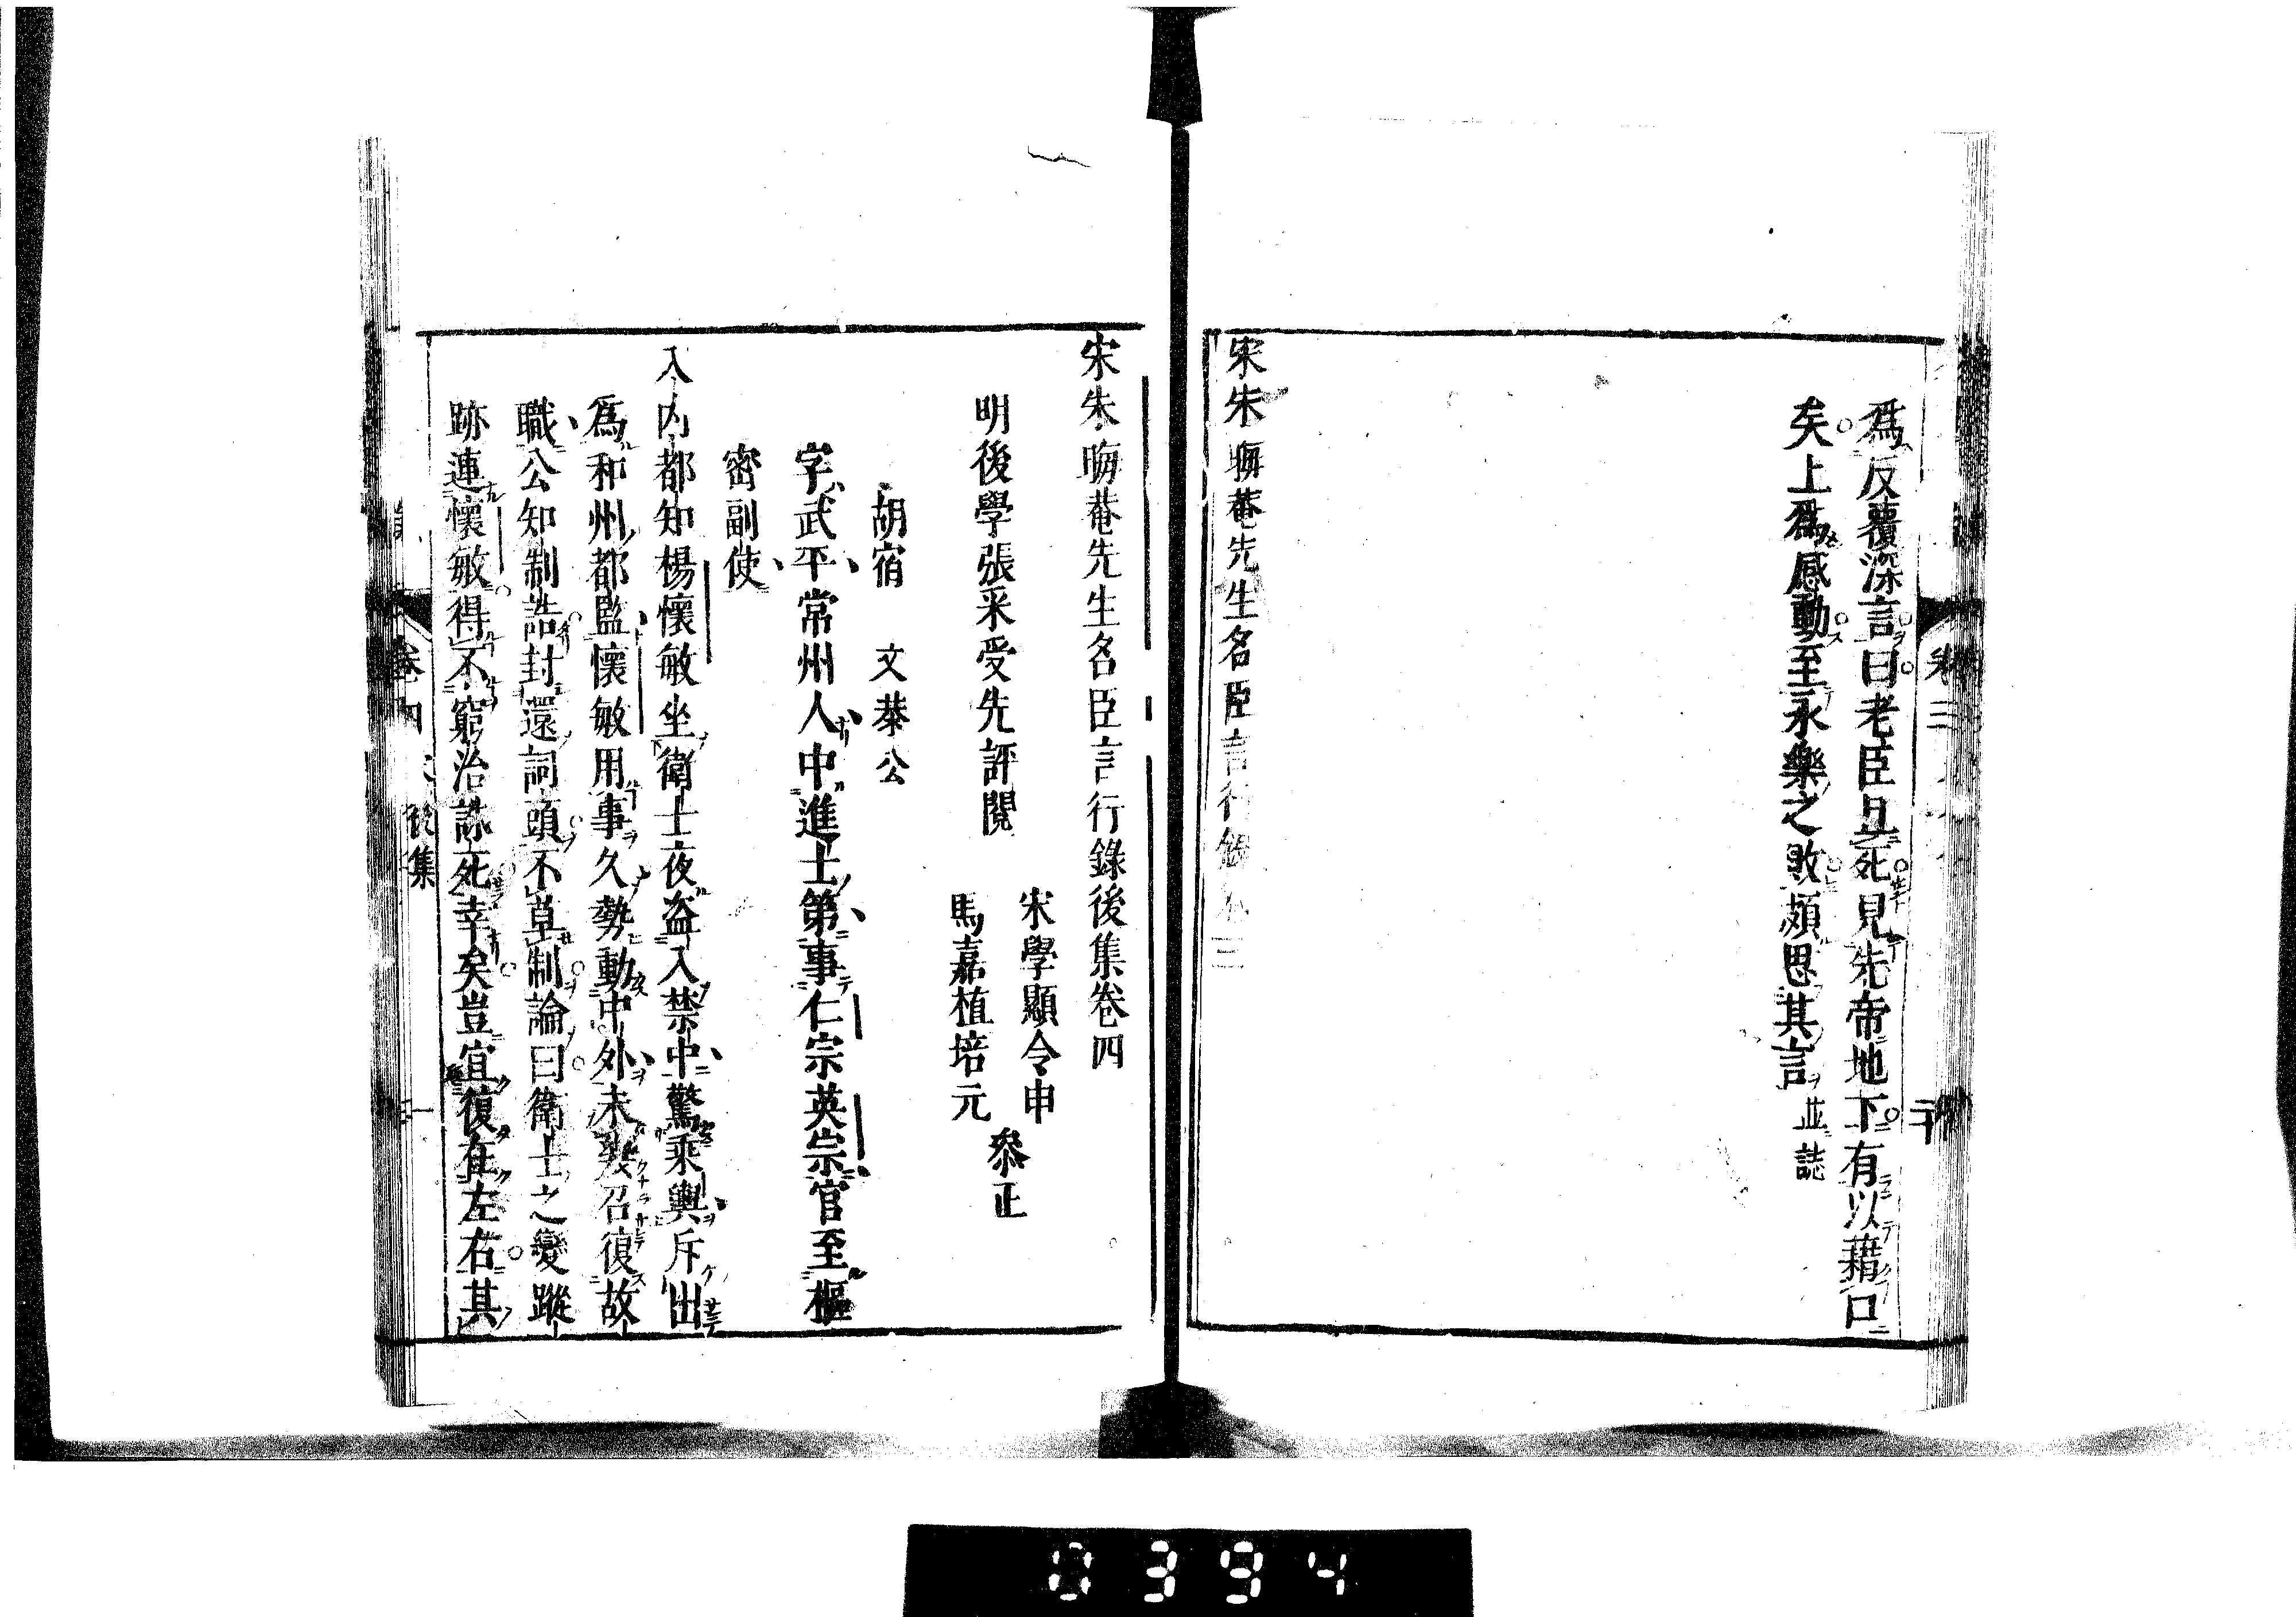 爲反覆深言曰老臣且死見先帝地下有以藉口
矣上爲感動至永樂之敗頗思其言並誌
宋朱晦菴先生名臣言行錄卷三
宋朱晦菴先生名臣言行錄後集卷四
宋學顯令申
明後學張采受先評閱
馬嘉植培元
參正
胡宿 文恭公
字武平常州人中進士第事仁宗英宗官至樞
密副使
入内都知楊懷敏坐衛士夜盗入禁中驚乘輿斥出
爲和州都監懷敏用事久勢動中外未幾召復故
職公知制誥封還詞頭不草制論曰衛士之變蹤
跡連懷敏得不窮治誅死幸矣豈宜復在左右其
卷三
卷四
後集
一
0394